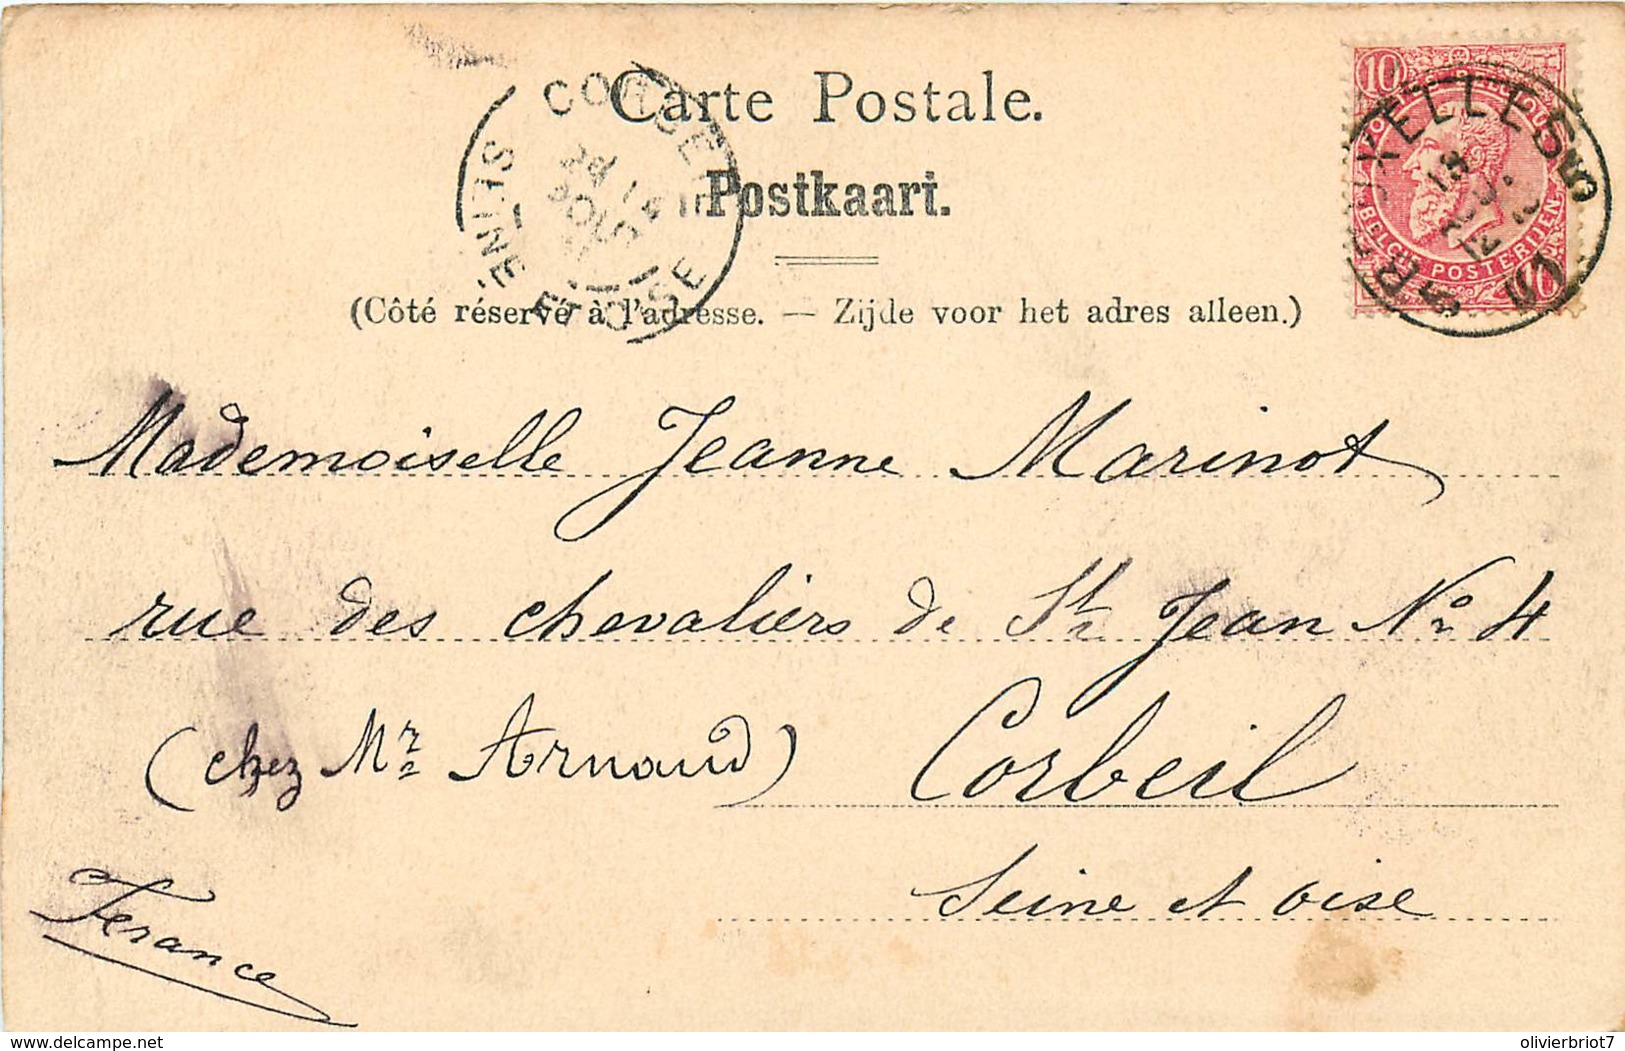 Carte Postale.
Postkaart.
(Côté réservé à l'adresse. — Zijde voor het adres alleen.)
10
BELGIË POSTERIJEN
10
BRUXELLES
CORBEIL
SEINE ET OISE
Mademoiselle Jeanne Marinot
rue des chevaliers de St Jean No 4
(chez Mr Arnaud) Corbeil
Seine et oise
France
delcampe.net
olivierbriot7